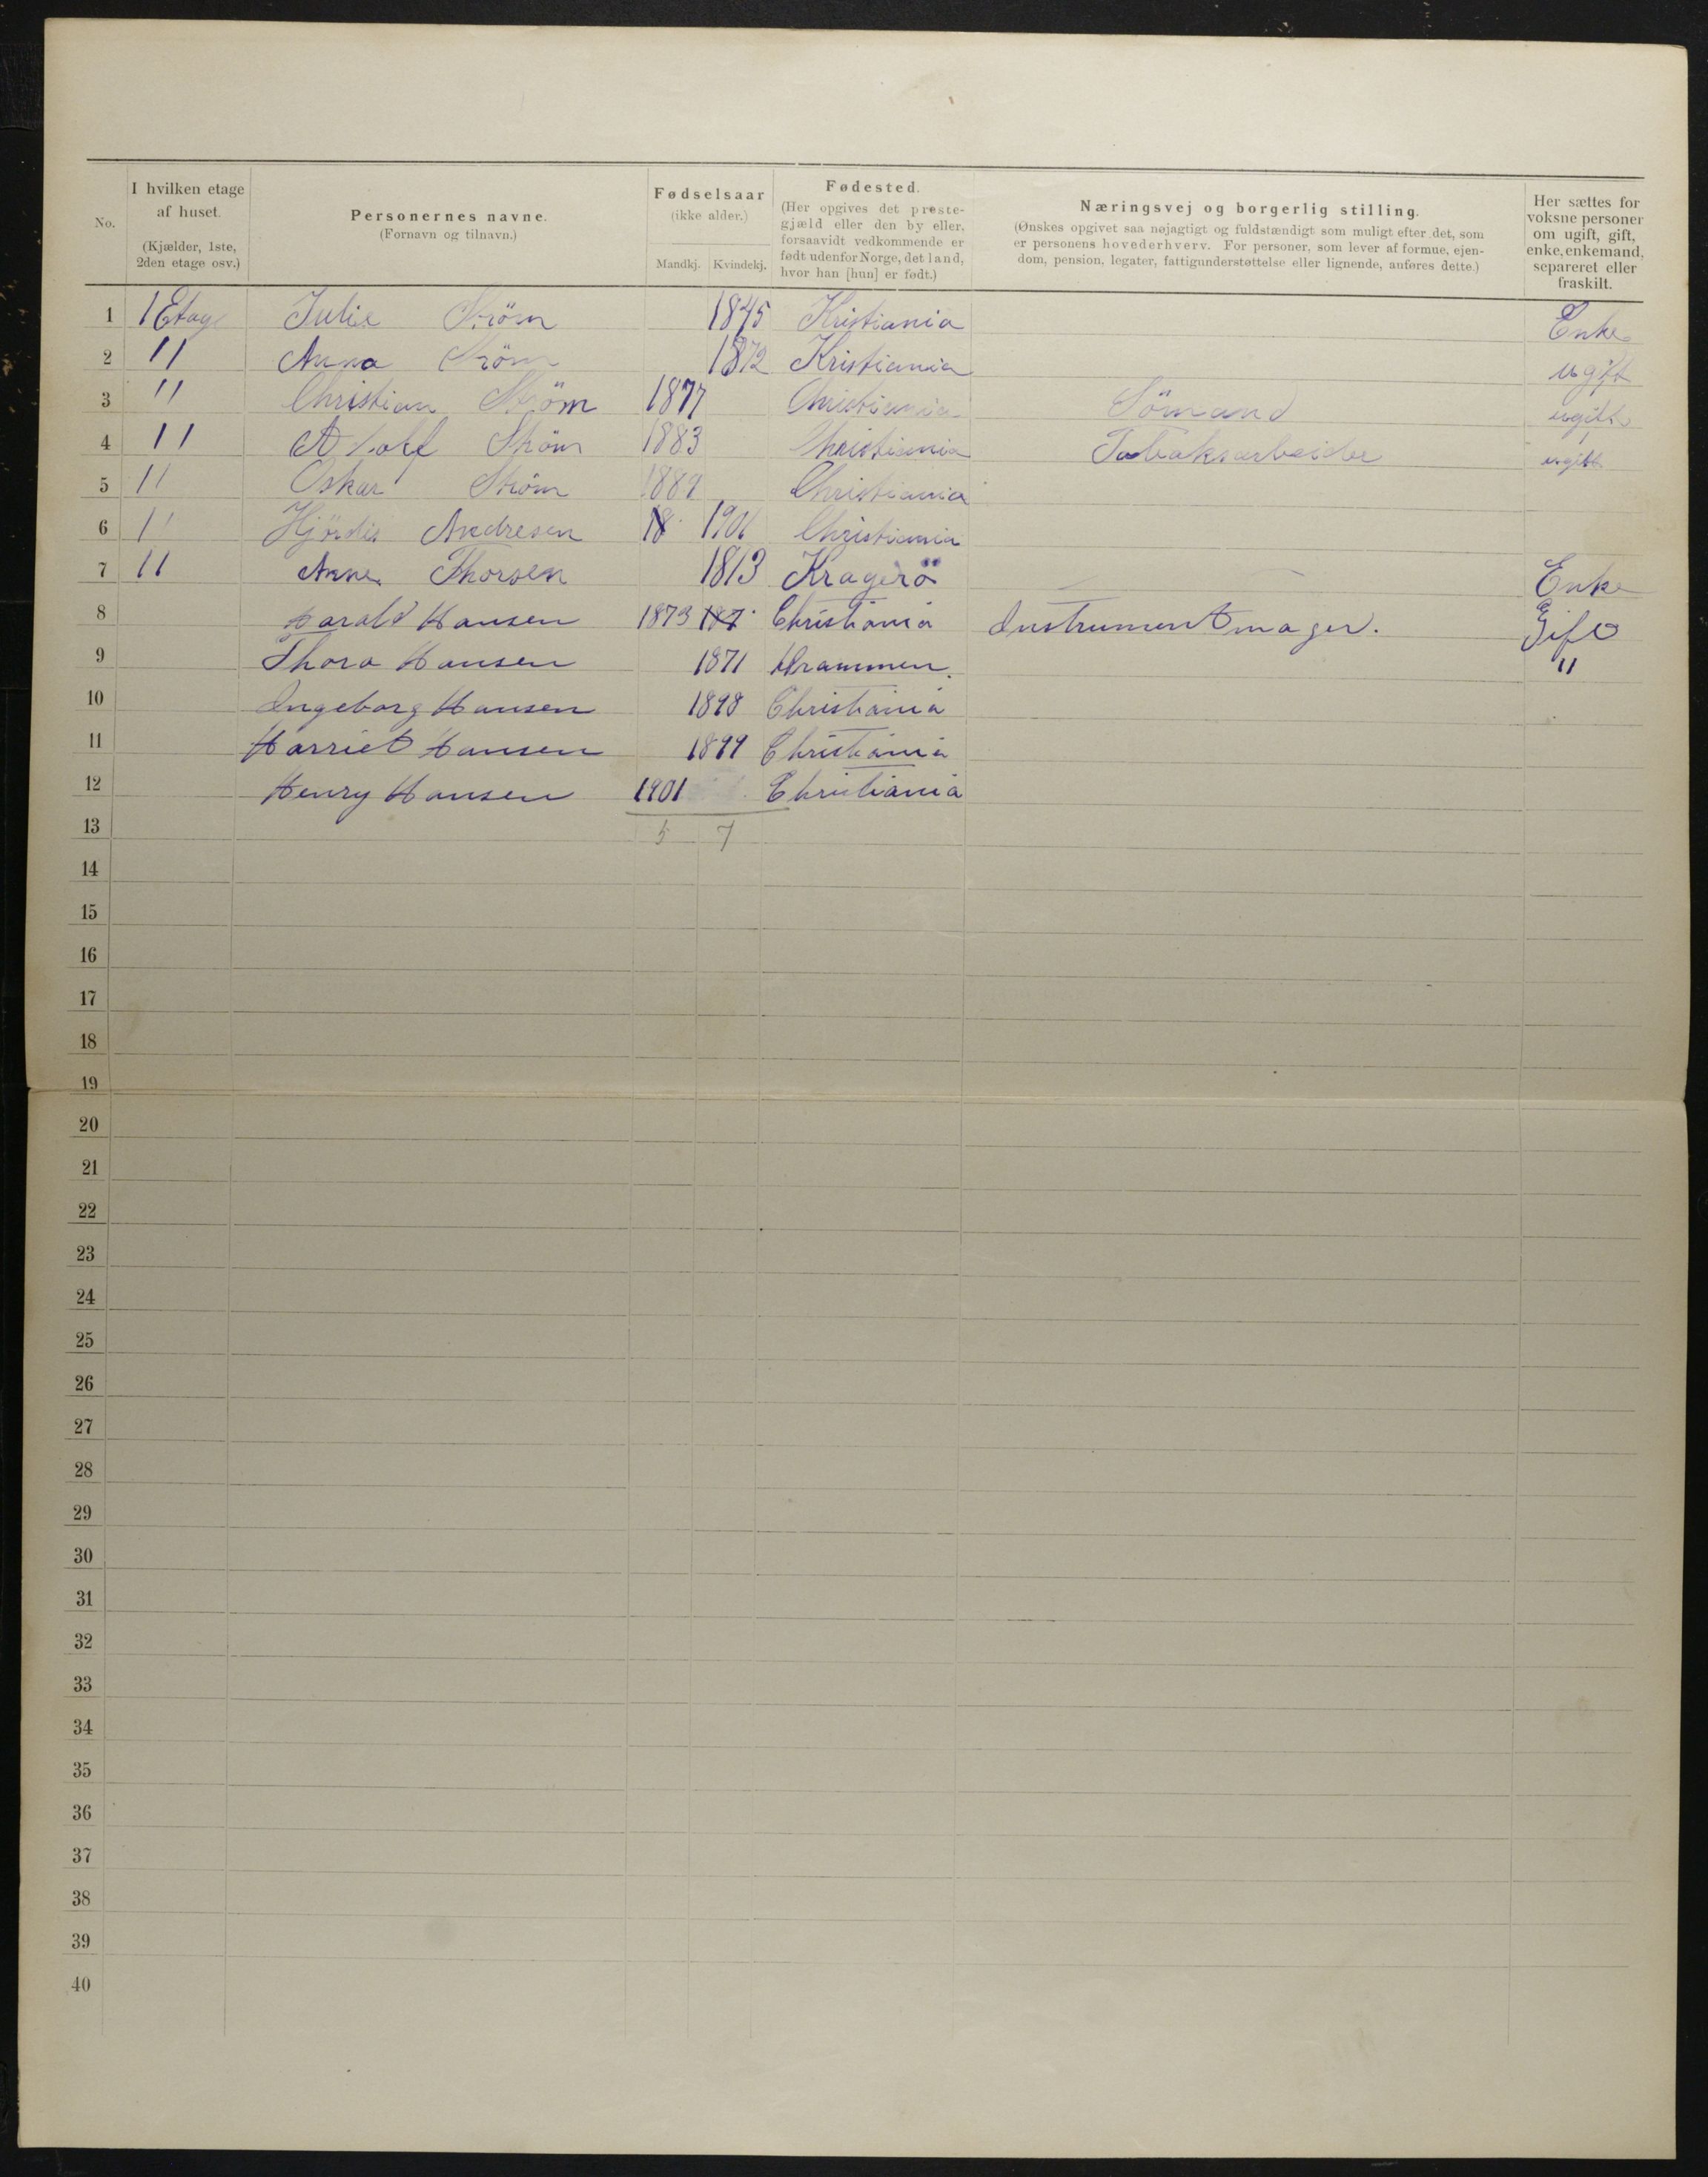 No. I hvilken etage af huset. (Kjælder, 1ste, 2den etage osv.) Personernes navne. (Fornavn og tilnavn.) Fødselsaar (ikke alder.) Mandkj. Kvindekj. Fødested. (Her opgives det prestegjæld eller den by eller, forsaavidt vedkommende er født udenfor Norge, det land, hvor han [hun] er født.) Næringsvej og borgerlig stilling. (Ønskes opgivet saa nøjagtigt og fuldstændigt som muligt efter det, som er personens hovederhverv. For personer, som lever af formue, ejendom, pension, legater, fattigunderstøttelse eller lignende, anføres dette.) Her sættes for voksne personer om ugift, gift, enke, enkemand, separeret eller fraskilt.
1 1 Etage Julie Ström 1845 Kristiania Enke
2 " Anna Ström 1872 Kristiania ugift
3 " Christian Ström 1877 Christiania Sömand ugift
4 " Adolf Ström 1883 Christiania Tobaksarbeider ugift
5 " Oskar Ström 1889 Christiania
6 " Hjördis Andresen 18 1901 Christiania
7 " Anne Thorsen 1813 Kragerö Enke
8 Harald Hansen 1873 187 Christiania Instrumentmager. Gift
9 Thora Hansen 1871 Drammen. "
10 Ingeborg Hansen 1898 Christiania
11 Harriet Hansen 1899 Christiania
12 Henry Hansen 1901 Christiania
13 5 7
14
15
16
17
18
19
20
21
22
23
24
25
26
27
28
29
30
31
32
33
34
35
36
37
38
39
40